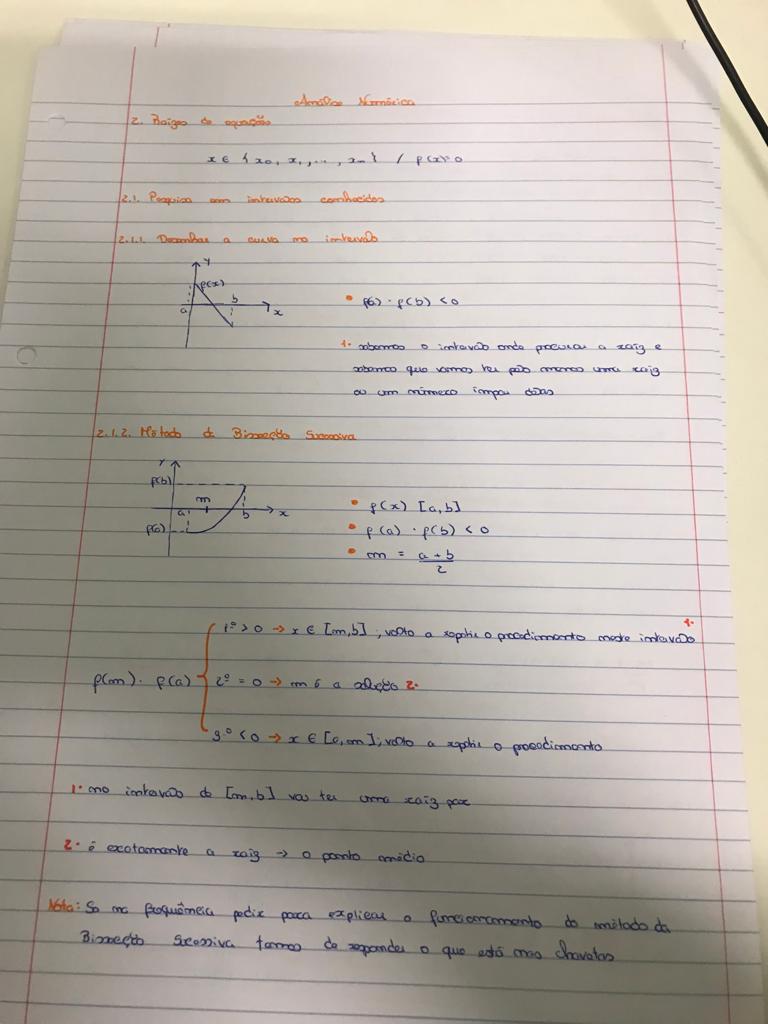 Análise Numérica
2. Raizes de equação
x ∈ { x0, x1, ..., xn } / f(x)=0
2.1. Pesquisa em intervalos conhecidos
2.1.1. Desenhar a curva no intervalo
y
f(x)
a b x
• f(a) · f(b) < 0
1. sabemos o intervalo onde procurar a raiz e
sabemos que vamos ter pelo menos uma raiz
ou um número impar delas
2.1.2. Método de Bissecção Sucessiva
y
f(b)
m
a b x
f(a)
• f(x) [a,b]
• f(a) · f(b) < 0
• m = a + b
2
1.
1º > 0 → x ∈ [m,b], volto a repetir o procedimento neste intervalo
f(m) · f(a) { 2º = 0 → m é a solução 2.
3.º < 0 → x ∈ [a,m], volto a repetir o procedimento
1. no intervalo de [m,b] vai ter uma raiz par
2. é exatamente a raiz → o ponto médio
Nota: Se na frequência pedir para explicar o funcionamento do método da
Bissecção Sucessiva temos de responder o que está nas chavetas